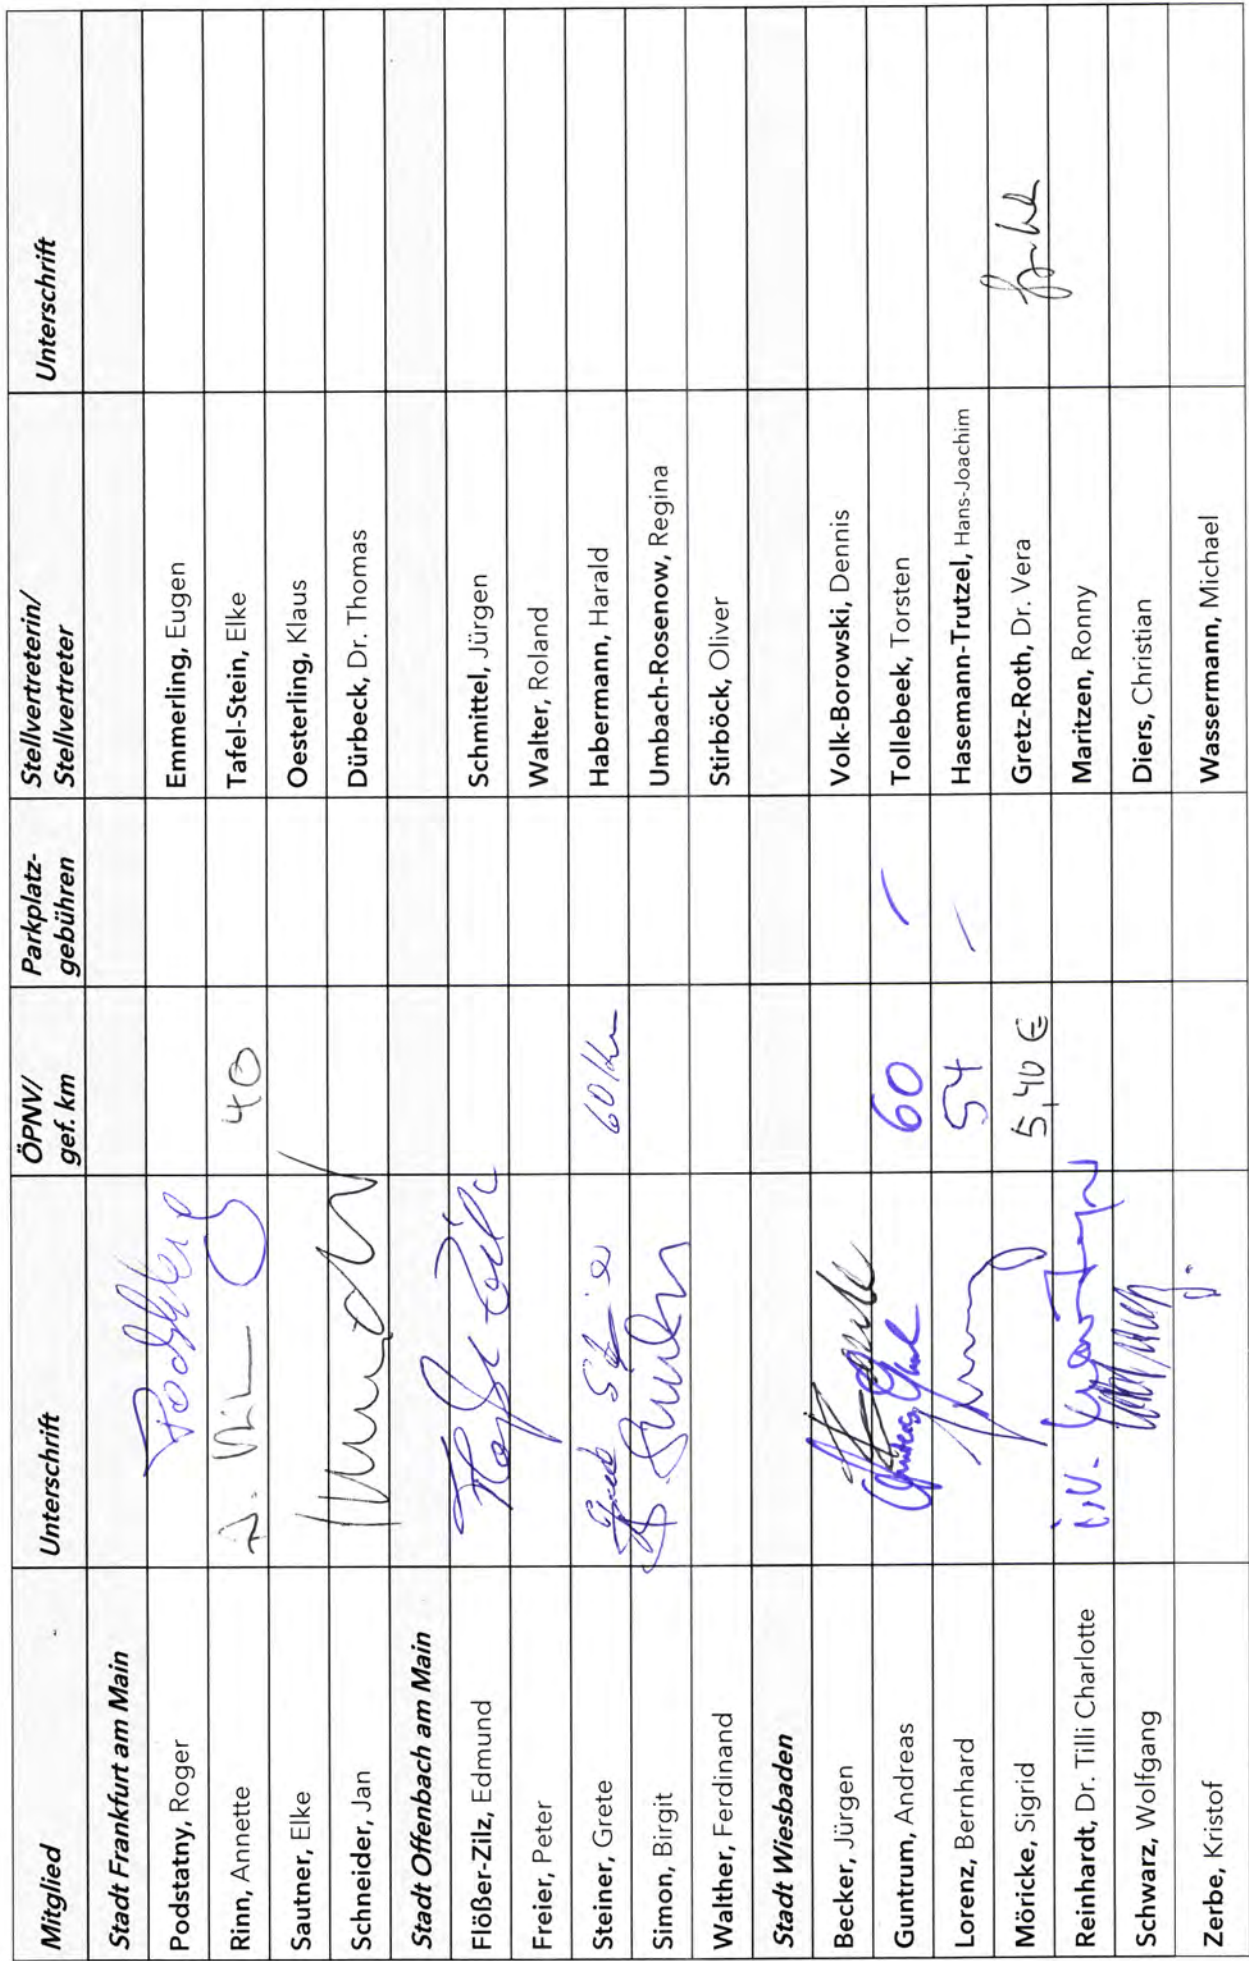 Mitglied Unterschrift ÖPNV/ gef. km Parkplatz- gebühren Stellvertreterin/ Stellvertreter Unterschrift
Stadt Frankfurt am Main
Podstatny, Roger Emmerling, Eugen
Rinn, Annette 40 Tafel-Stein, Elke
Sautner, Elke Oesterling, Klaus
Schneider, Jan Dürbeck, Dr. Thomas
Stadt Offenbach am Main
Flößer-Zilz, Edmund Schmittel, Jürgen
Freier, Peter Walter, Roland
Steiner, Grete 60 km Habermann, Harald
Simon, Birgit Umbach-Rosenow, Regina
Walther, Ferdinand Stirböck, Oliver
Stadt Wiesbaden
Becker, Jürgen Volk-Borowski, Dennis
Guntrum, Andreas 60 – Tollebeek, Torsten
Lorenz, Bernhard 54 – Hasemann-Trutzel, Hans-Joachim
Möricke, Sigrid 5,40 € Gretz-Roth, Dr. Vera
Reinhardt, Dr. Tilli Charlotte i.V. Maritzen, Ronny
Schwarz, Wolfgang Diers, Christian
Zerbe, Kristof Wassermann, Michael